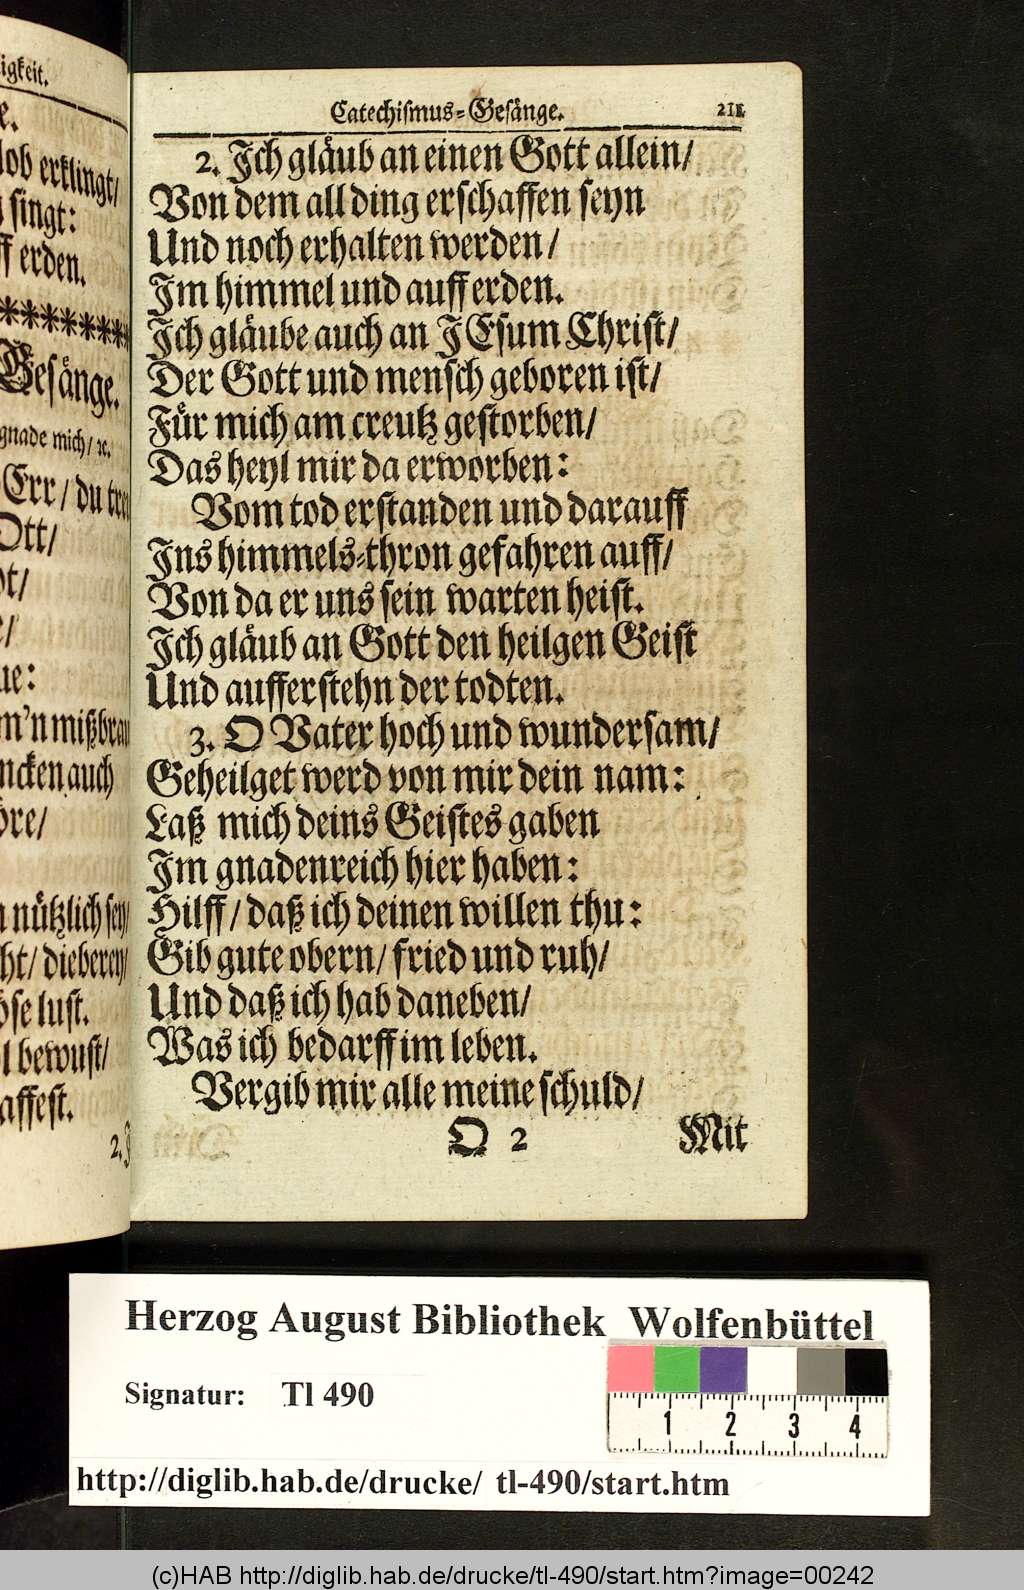 igkeit.
e.
lob erklingt/
singt:
ff erden.
***********
Gesänge.
gnade mich/ ꝛc.
Err / du
Ott/
ue:
m'n
ncken auch
öre/
nützlich sey/
ht/ dieberey/
öse lust.
l bewust/
affest.
2.
Catechismus-Gesänge. 211
2. Ich gläub an einen Gott allein/
Von dem all ding erschaffen seyn
Und noch erhalten werden/
Im himmel und auff erden.
Ich gläube auch an JEsum Christ/
Der Gott und mensch geboren ist/
Für mich am creutz gestorben/
Das heyl mir da erworben:
Vom tod erstanden und darauff
Ins himmels-thron gefahren auff/
Von da er uns sein warten heist.
Ich gläub an Gott den heilgen Geist
Und aufferstehn der todten.
3. O Vater hoch und wundersam/
Geheilget werd von mir dein nam:
Laß mich deins Geistes gaben
Im gnadenreich hier haben:
Hilff/ daß ich deinen willen thu:
Gib gute obern/ fried und ruh/
Und daß ich hab daneben/
Was ich bedarff im leben.
Vergib mir alle meine schuld/
O 2 Mit
Herzog August Bibliothek Wolfenbüttel
Signatur: Tl 490
1 2 3 4
http://diglib.hab.de/drucke/ tl-490/start.htm
(c)HAB http://diglib.hab.de/drucke/tl-490/start.htm?image=00242